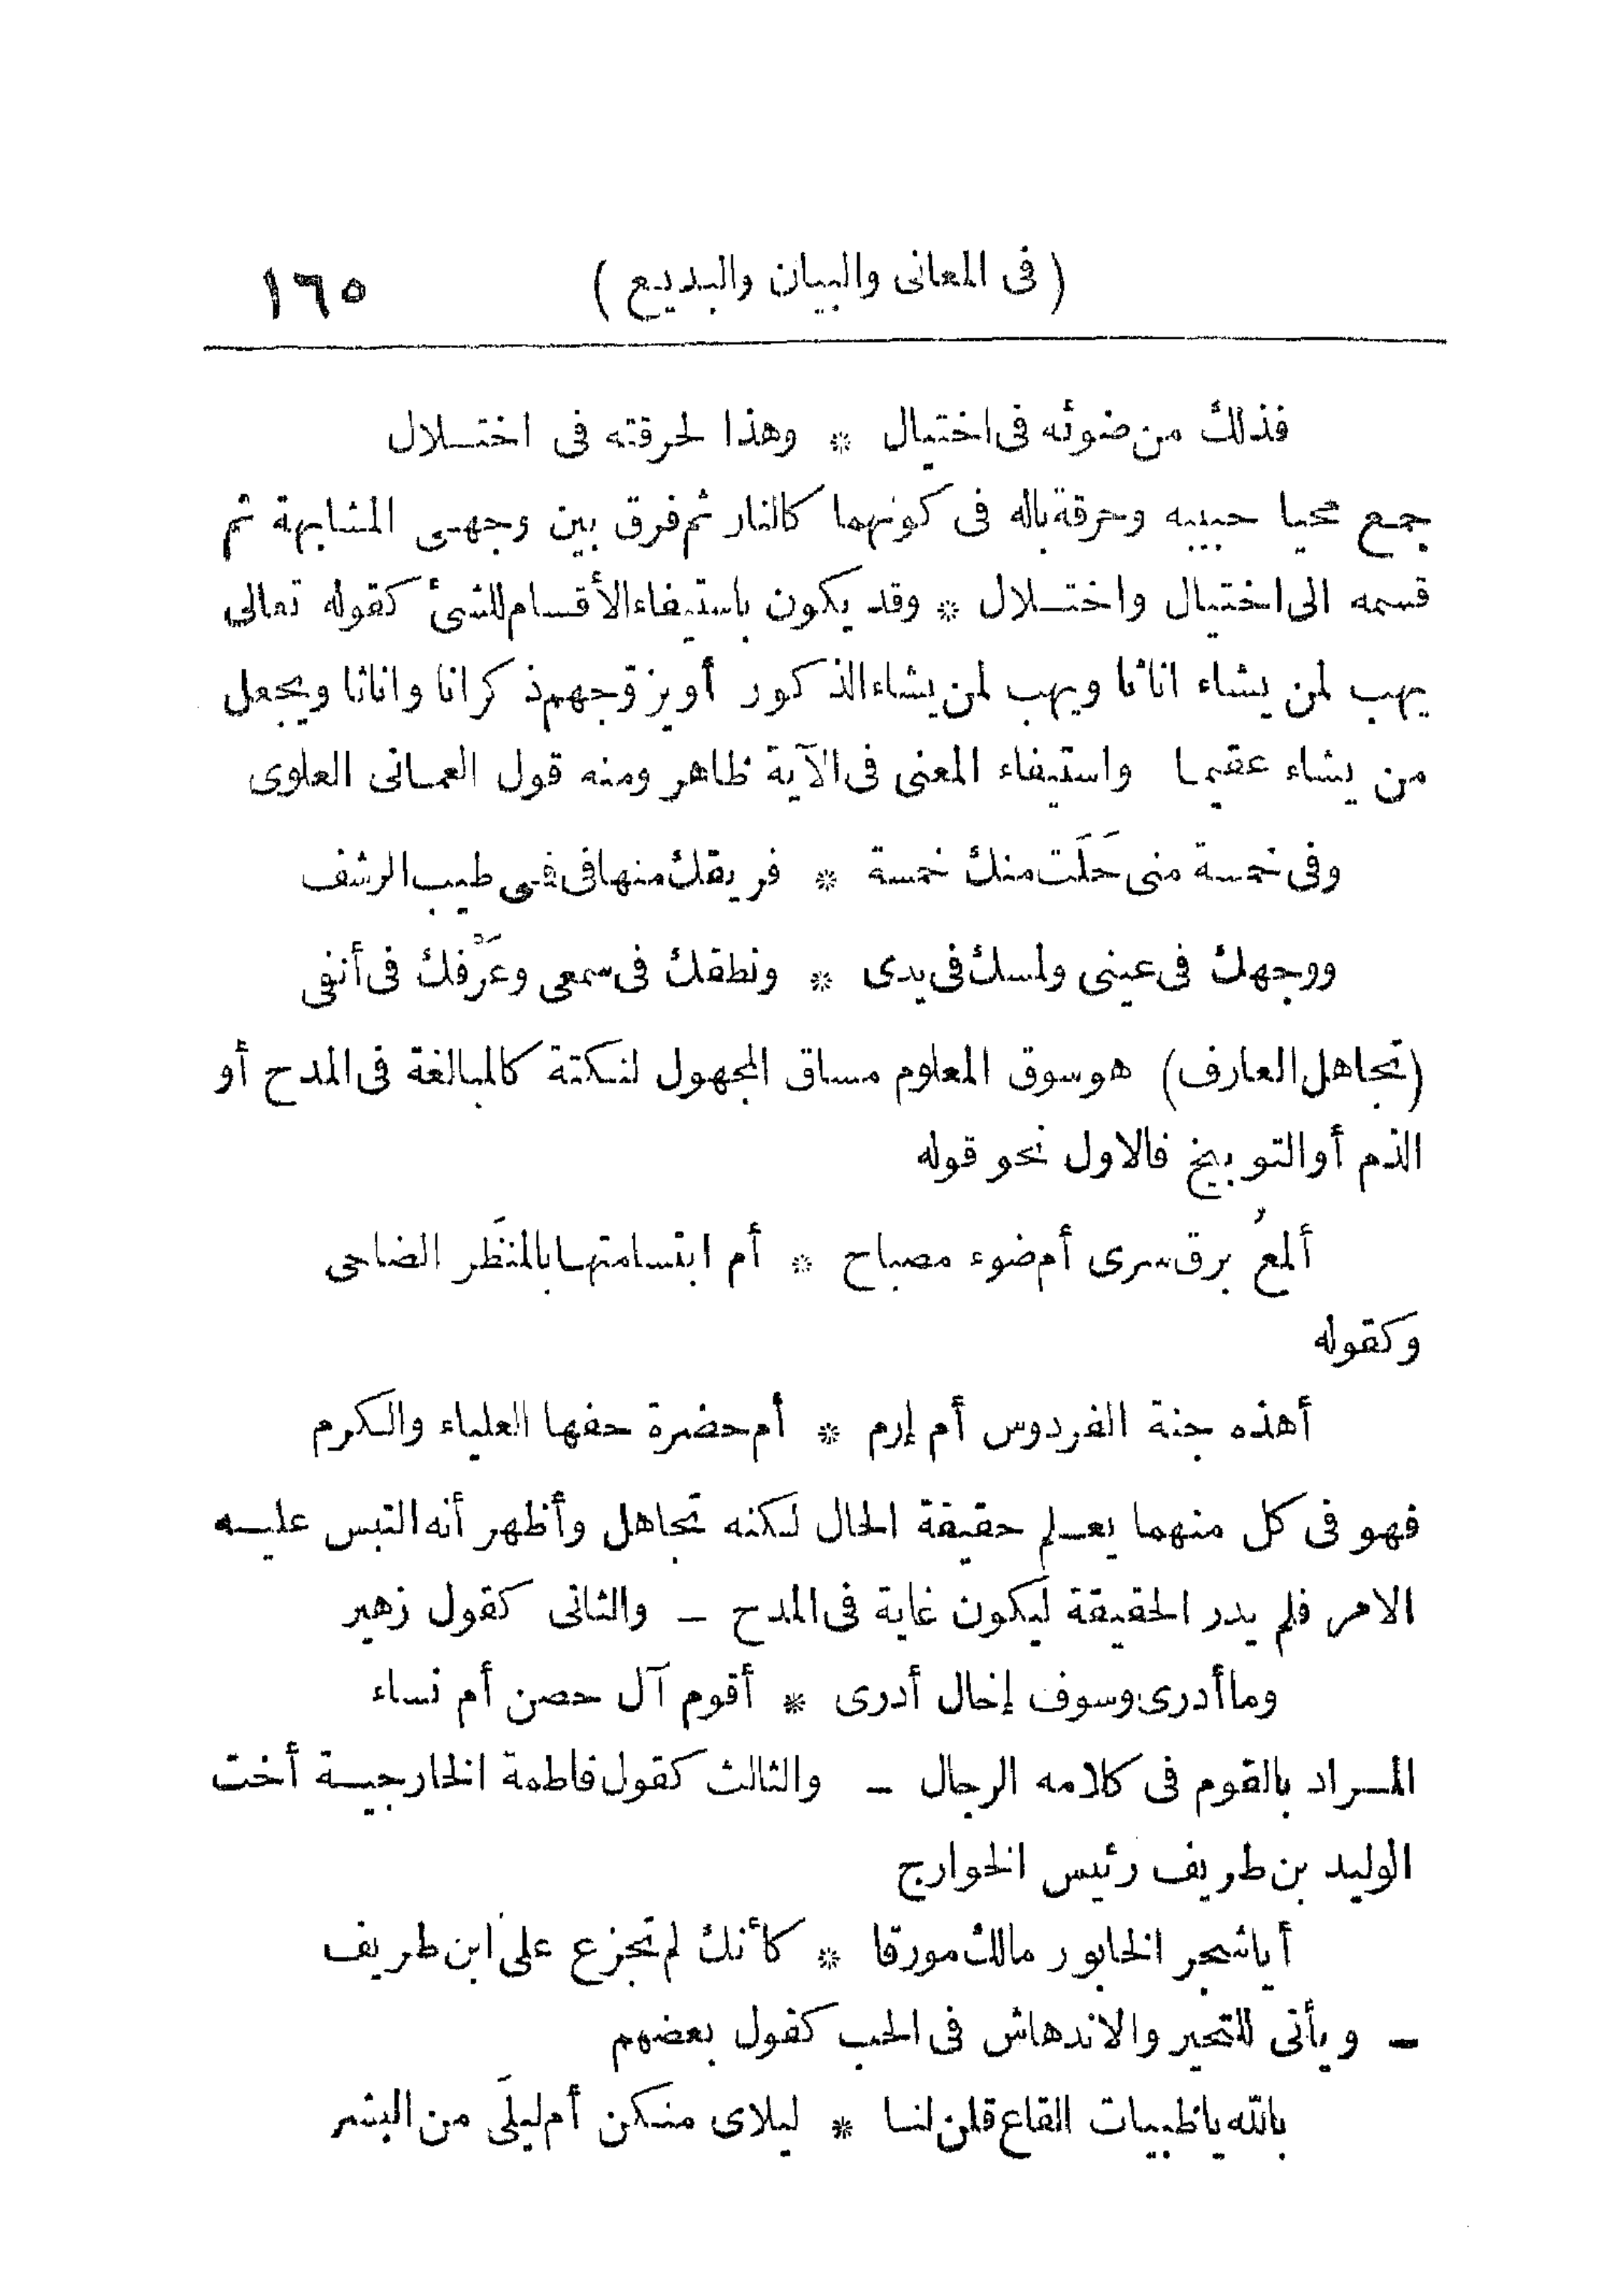 (فى المعانى والبيان والبديع) ١٦٥
فذلك من ضوئه فى اختيال * وهذا لحرقته فى اختـلال
جمع محيا حبيبه وحرقة باله فى كونهما كالنار ثم فرق بين وجهى المشابهة ثم
قسمه الى اختيال واختـلال * وقد يكون باستيفاء الأقسام للشئ كقوله تعالى
يهب لمن يشاء اناثا ويهب لمن يشاء الذكور أو يزوّجهم ذكرانا واناثا ويجعل
من يشاء عقيما واستيفاء المعنى فى الآية ظاهر ومنه قول العمانى العلوى
وفى خمسة منى حَلَت منك خمسة * فريقك منها فى فمى طيب الرشف
ووجهك فى عينى ولمسك فى يدى * ونطقك فى سمعى وعَرْفك فى أنفى
(تجاهل العارف) هو سوق المعلوم مساق المجهول لنكتة كالمبالغة فى المدح أو
الذم أو التوبيخ فالاول نحو قوله
ألمعُ برق سرى أم ضوء مصباح * أم ابتسامتها بالمنظَر الضاحى
وكقوله
أهذه جنة الفردوس أم إرم * أم حضرة حفها العلياء والكرم
فهو فى كل منهما يعـلم حقيقة الحال لكنه تجاهل وأظهر أنه التبس عليـه
الامر فلم يدر الحقيقة ليكون غاية فى المدح ـ والثانى كقول زهير
وما أدرى وسوف إخال أدرى * أقوم آل حصن أم نساء
المـراد بالقوم فى كلامه الرجال ـ والثالث كقول فاطمة الخارجيـة أخت
الوليد بن طريف رئيس الخوارج
أيا شجر الخابور مالك مورقا * كأنك لم تجزع على ابن طريف
ـ ويأتى للتحير والاندهاش فى الحب كقول بعضهم
بالله يا ظبيات القاع قلن لنا * ليلاى منكن أم ليلَى من البشر